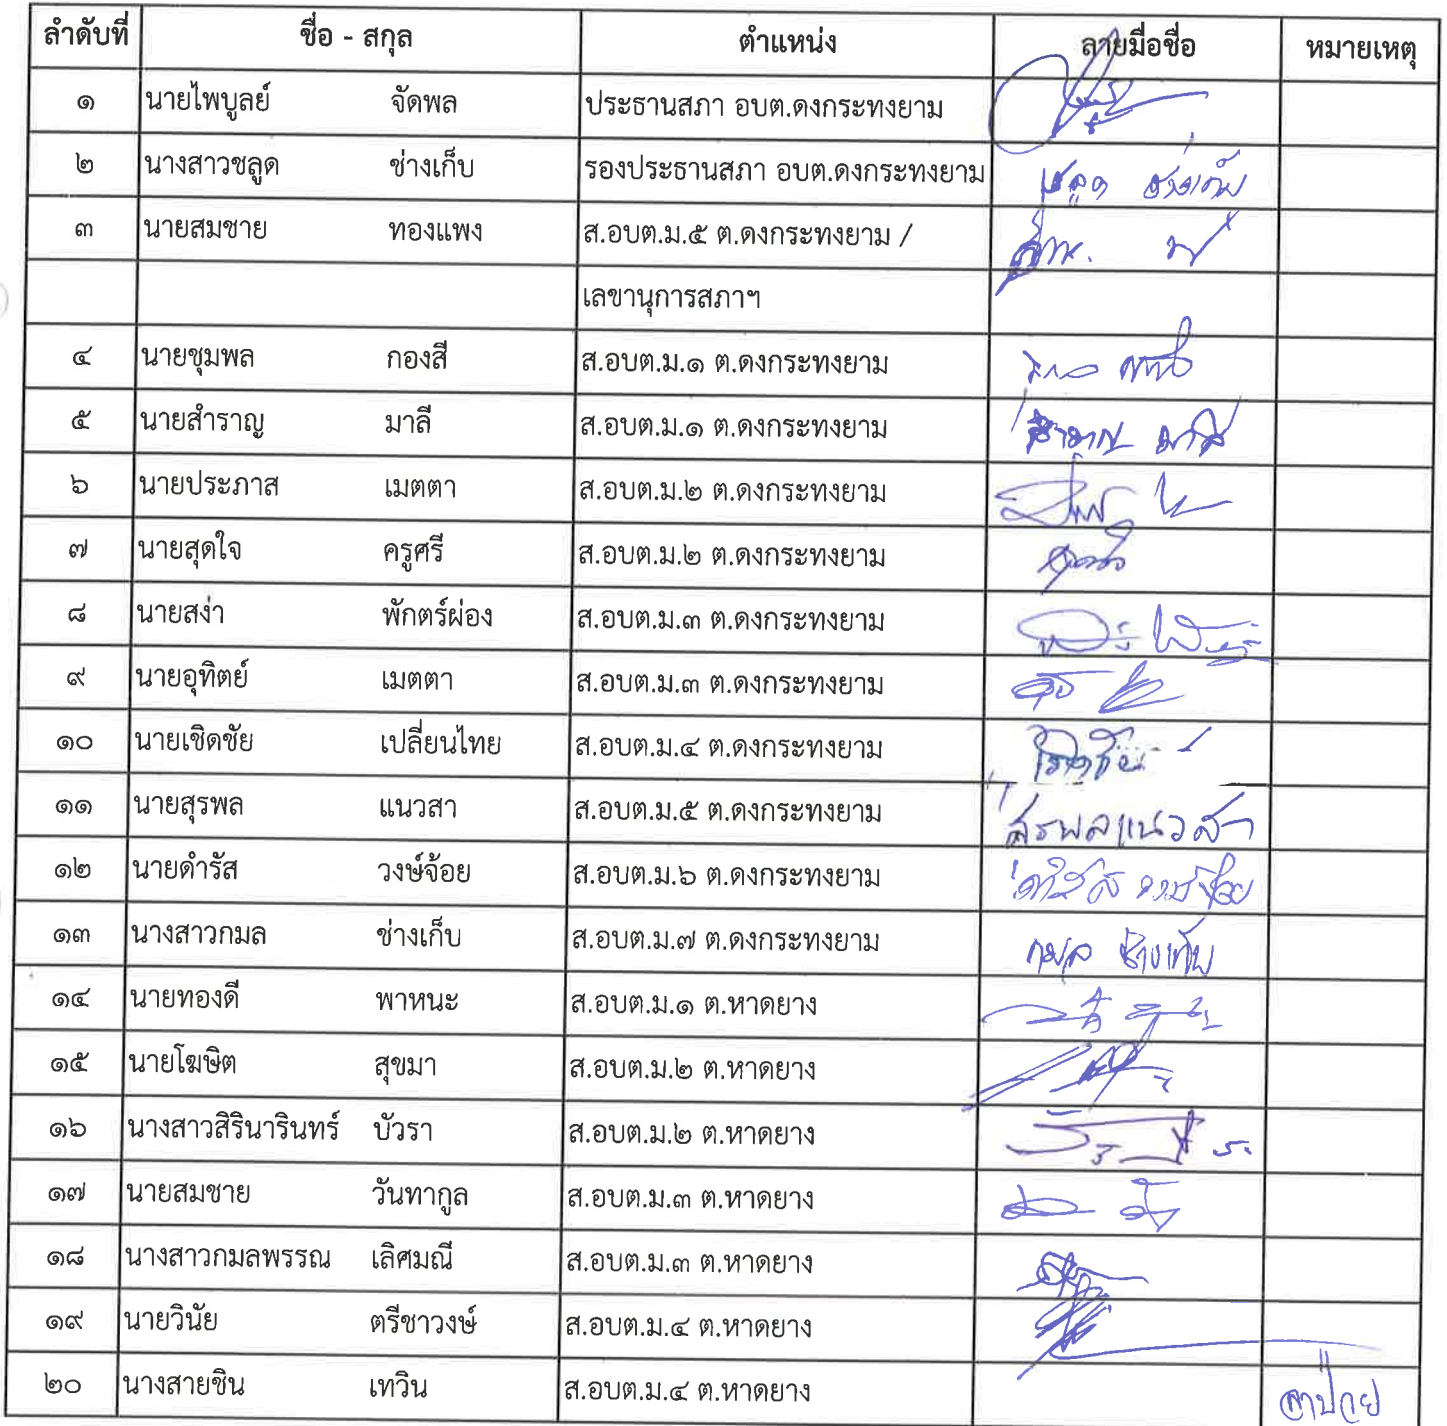 ลำดับที่ ชื่อ - สกุล ตำแหน่ง ลายมือชื่อ หมายเหตุ
๑ นายไพบูลย์ จัดพล ประธานสภา อบต.ดงกระทงยาม
๒ นางสาวชลูด ช่างเก็บ รองประธานสภา อบต.ดงกระทงยาม ชลูด ช่างเก็บ
๓ นายสมชาย ทองแพง ส.อบต.ม.๕ ต.ดงกระทงยาม /
เลขานุการสภาฯ
๔ นายชุมพล กองสี ส.อบต.ม.๑ ต.ดงกระทงยาม
๕ นายสำราญ มาลี ส.อบต.ม.๑ ต.ดงกระทงยาม สำราญ มาลี
๖ นายประภาส เมตตา ส.อบต.ม.๒ ต.ดงกระทงยาม
๗ นายสุดใจ ครูศรี ส.อบต.ม.๒ ต.ดงกระทงยาม
๘ นายสง่า พักตร์ผ่อง ส.อบต.ม.๓ ต.ดงกระทงยาม
๙ นายอุทิตย์ เมตตา ส.อบต.ม.๓ ต.ดงกระทงยาม
๑๐ นายเชิดชัย เปลี่ยนไทย ส.อบต.ม.๔ ต.ดงกระทงยาม เชิดชัย
๑๑ นายสุรพล แนวสา ส.อบต.ม.๕ ต.ดงกระทงยาม สุรพล แนวสา
๑๒ นายดำรัส วงษ์จ้อย ส.อบต.ม.๖ ต.ดงกระทงยาม ดำรัส วงษ์จ้อย
๑๓ นางสาวกมล ช่างเก็บ ส.อบต.ม.๗ ต.ดงกระทงยาม กมล ช่างเก็บ
๑๔ นายทองดี พาหนะ ส.อบต.ม.๑ ต.หาดยาง
๑๕ นายโฆษิต สุขมา ส.อบต.ม.๒ ต.หาดยาง
๑๖ นางสาวสิรินารินทร์ บัวรา ส.อบต.ม.๒ ต.หาดยาง
๑๗ นายสมชาย วันทากูล ส.อบต.ม.๓ ต.หาดยาง
๑๘ นางสาวกมลพรรณ เลิศมณี ส.อบต.ม.๓ ต.หาดยาง
๑๙ นายวินัย ตรีชาวงษ์ ส.อบต.ม.๔ ต.หาดยาง
๒๐ นางสายชิน เทวิน ส.อบต.ม.๔ ต.หาดยาง ลาป่วย